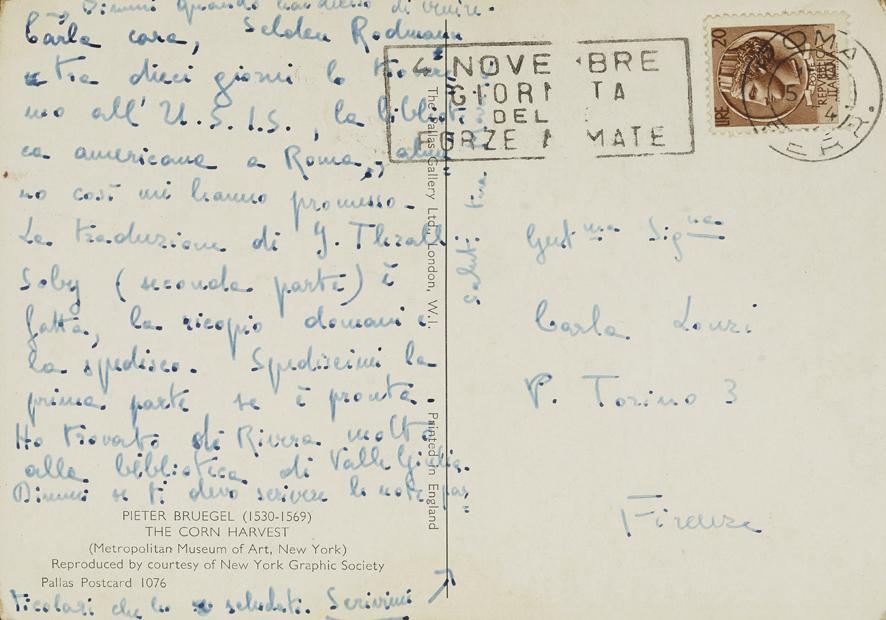 Dimmi quando hai deciso di venire.
Carla cara, Selden Rodmann
tra dieci giorni lo trovia-
mo all' U.S.I.S., la bibliote-
ca americana a Roma, alme-
no così mi hanno promesso.
La traduzione di J. Thrall
Soby (seconda parte) è
fatta, la ricopio domani e
la spedisco. Spediscimi la
prima parte se è pronta.
Ho trovato di Rivera molto
alla biblioteca di Valle Giulia.
Dimmi se ti devo scrivere le note
PIETER BRUEGEL (1530-1569)
THE CORN HARVEST
(Metropolitan Museum of Art, New York)
Reproduced by courtesy of New York Graphic Society
Pallas Postcard 1076
ticolari che ho saludati. Scrivimi
The Pallas Gallery Ltd., London, W.I. Printed in England
Saluti tua
4 NOVEMBRE
GIORNATA
DELLE
FORZE ARMATE
LIRE 20
REPUBBLICA ITALIANA
ROMA
FERR.
Gent.ma Sig.na
Carla Lonzi
P. Torino 3
Firenze